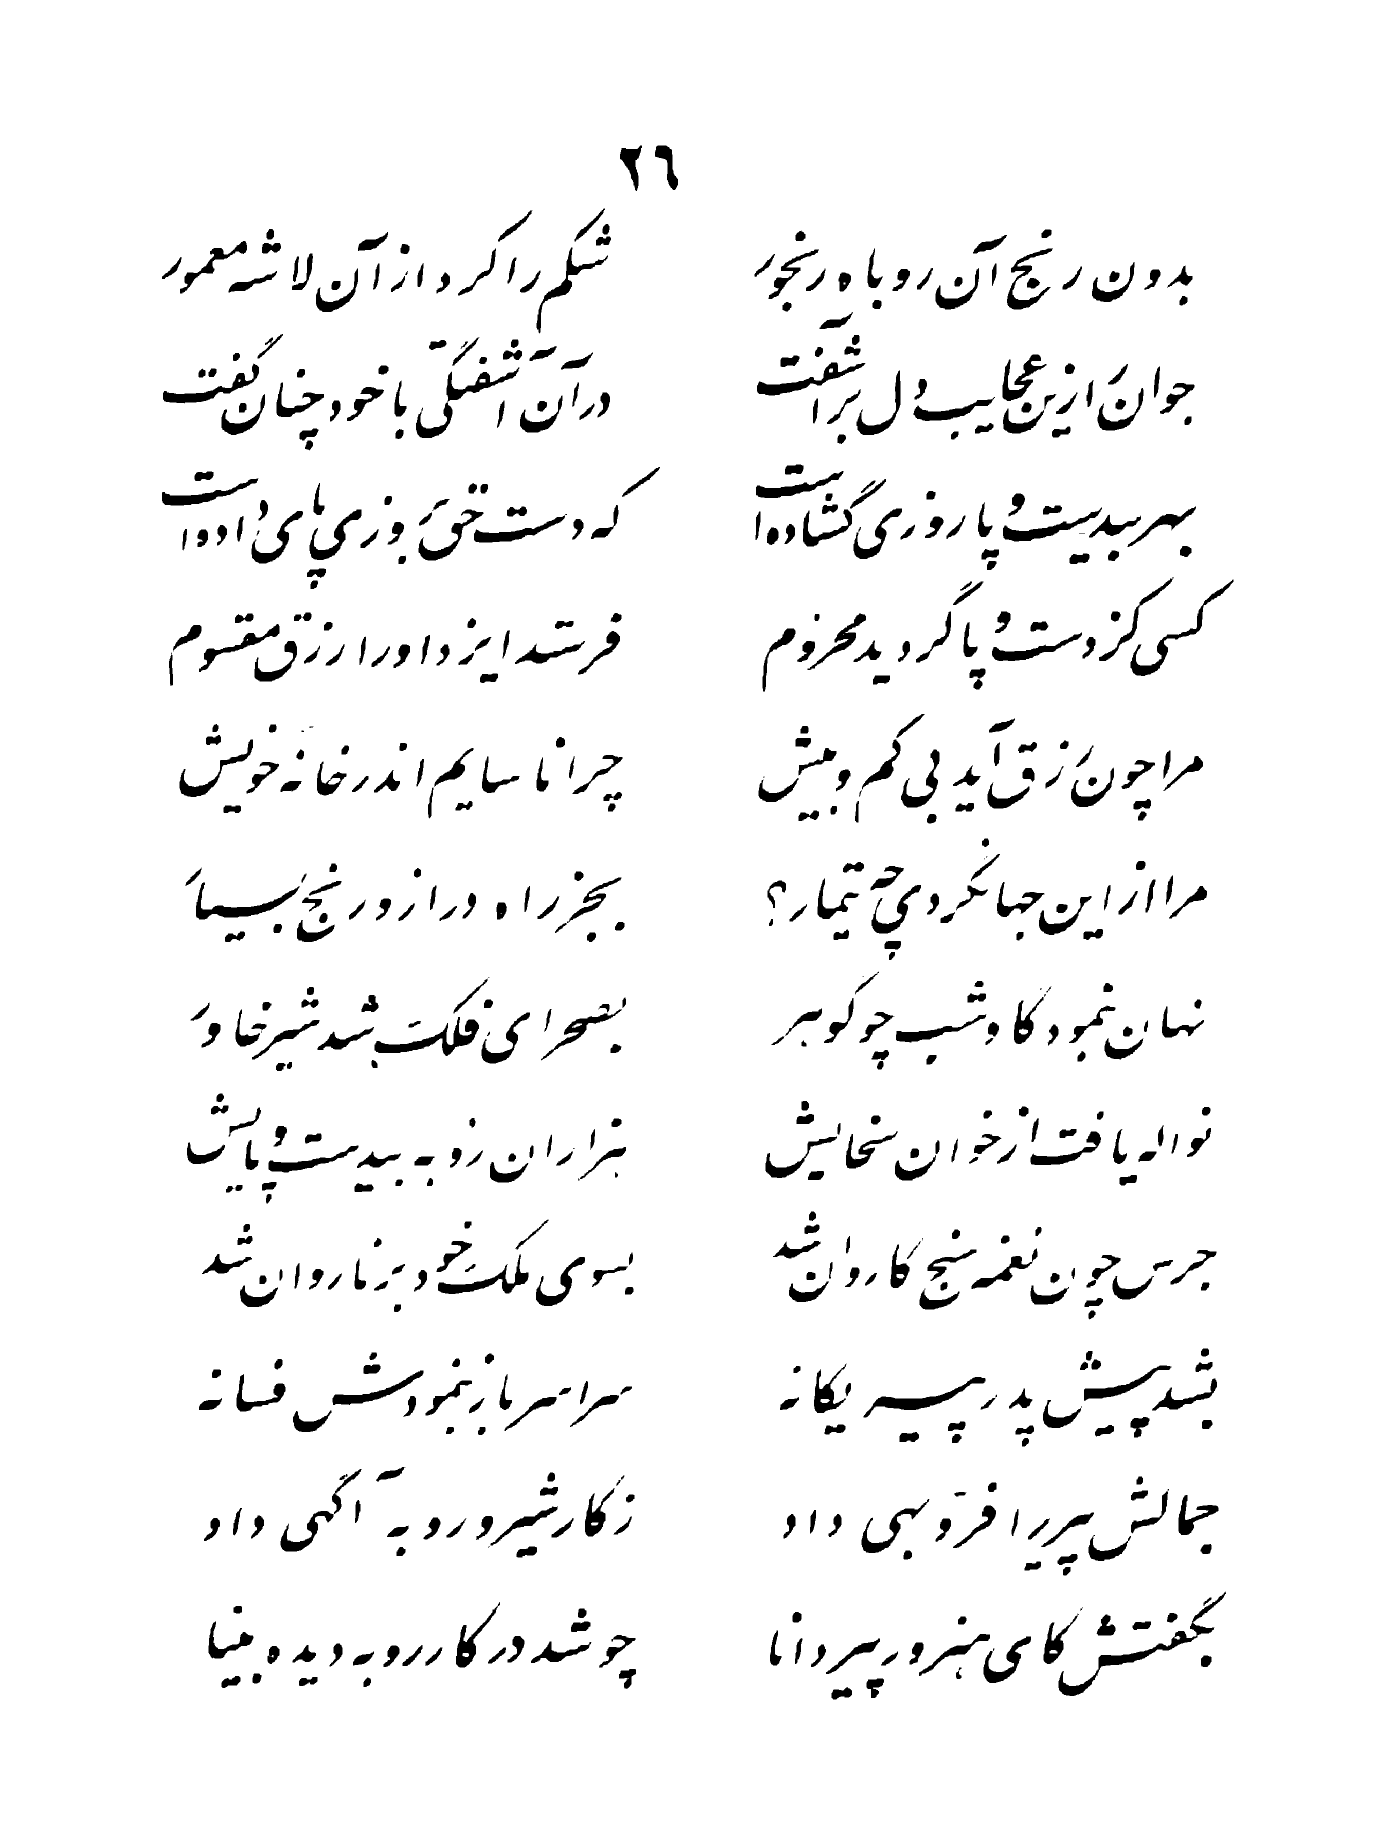 ٢٦
بدون رنج آن روباه رنجور شکم را کرد از آن لاشه معمور
جوان از ین عجایب دل بر آشفت در آن آشفتگی با خود چنان گفت
بهر بیدست و پا روزی گشاده است که دست حق بروزی پای داده است
کسی کز دست و پا گردید محروم فرستد ایزد او را رزق مقسوم
مرا چون رزق آید بی کم و بیش چرا ناسایم اندر خانه خویش
مرا از این جهانگردی چه تیمار؟ بجز راه دراز و رنج بسیار
نهان نمود گاو شب چو گوهر بصحرای فلک شد شیر خاور
نواله یافت از خوان سخایش هزاران روبه بیدست و پایش
جرس چون نغمه سنج کاروان شد بسوی ملک خود برنا روان شد
بشد پیش پدر پیر یگانه سراسر باز بنمودش فسانه
جمالش پیر را فر و بهی داد ز کار شیر و روبه آگهی داد
بگفتش کای هنرور پیر دانا چو شد در کار روبه دیده بینا